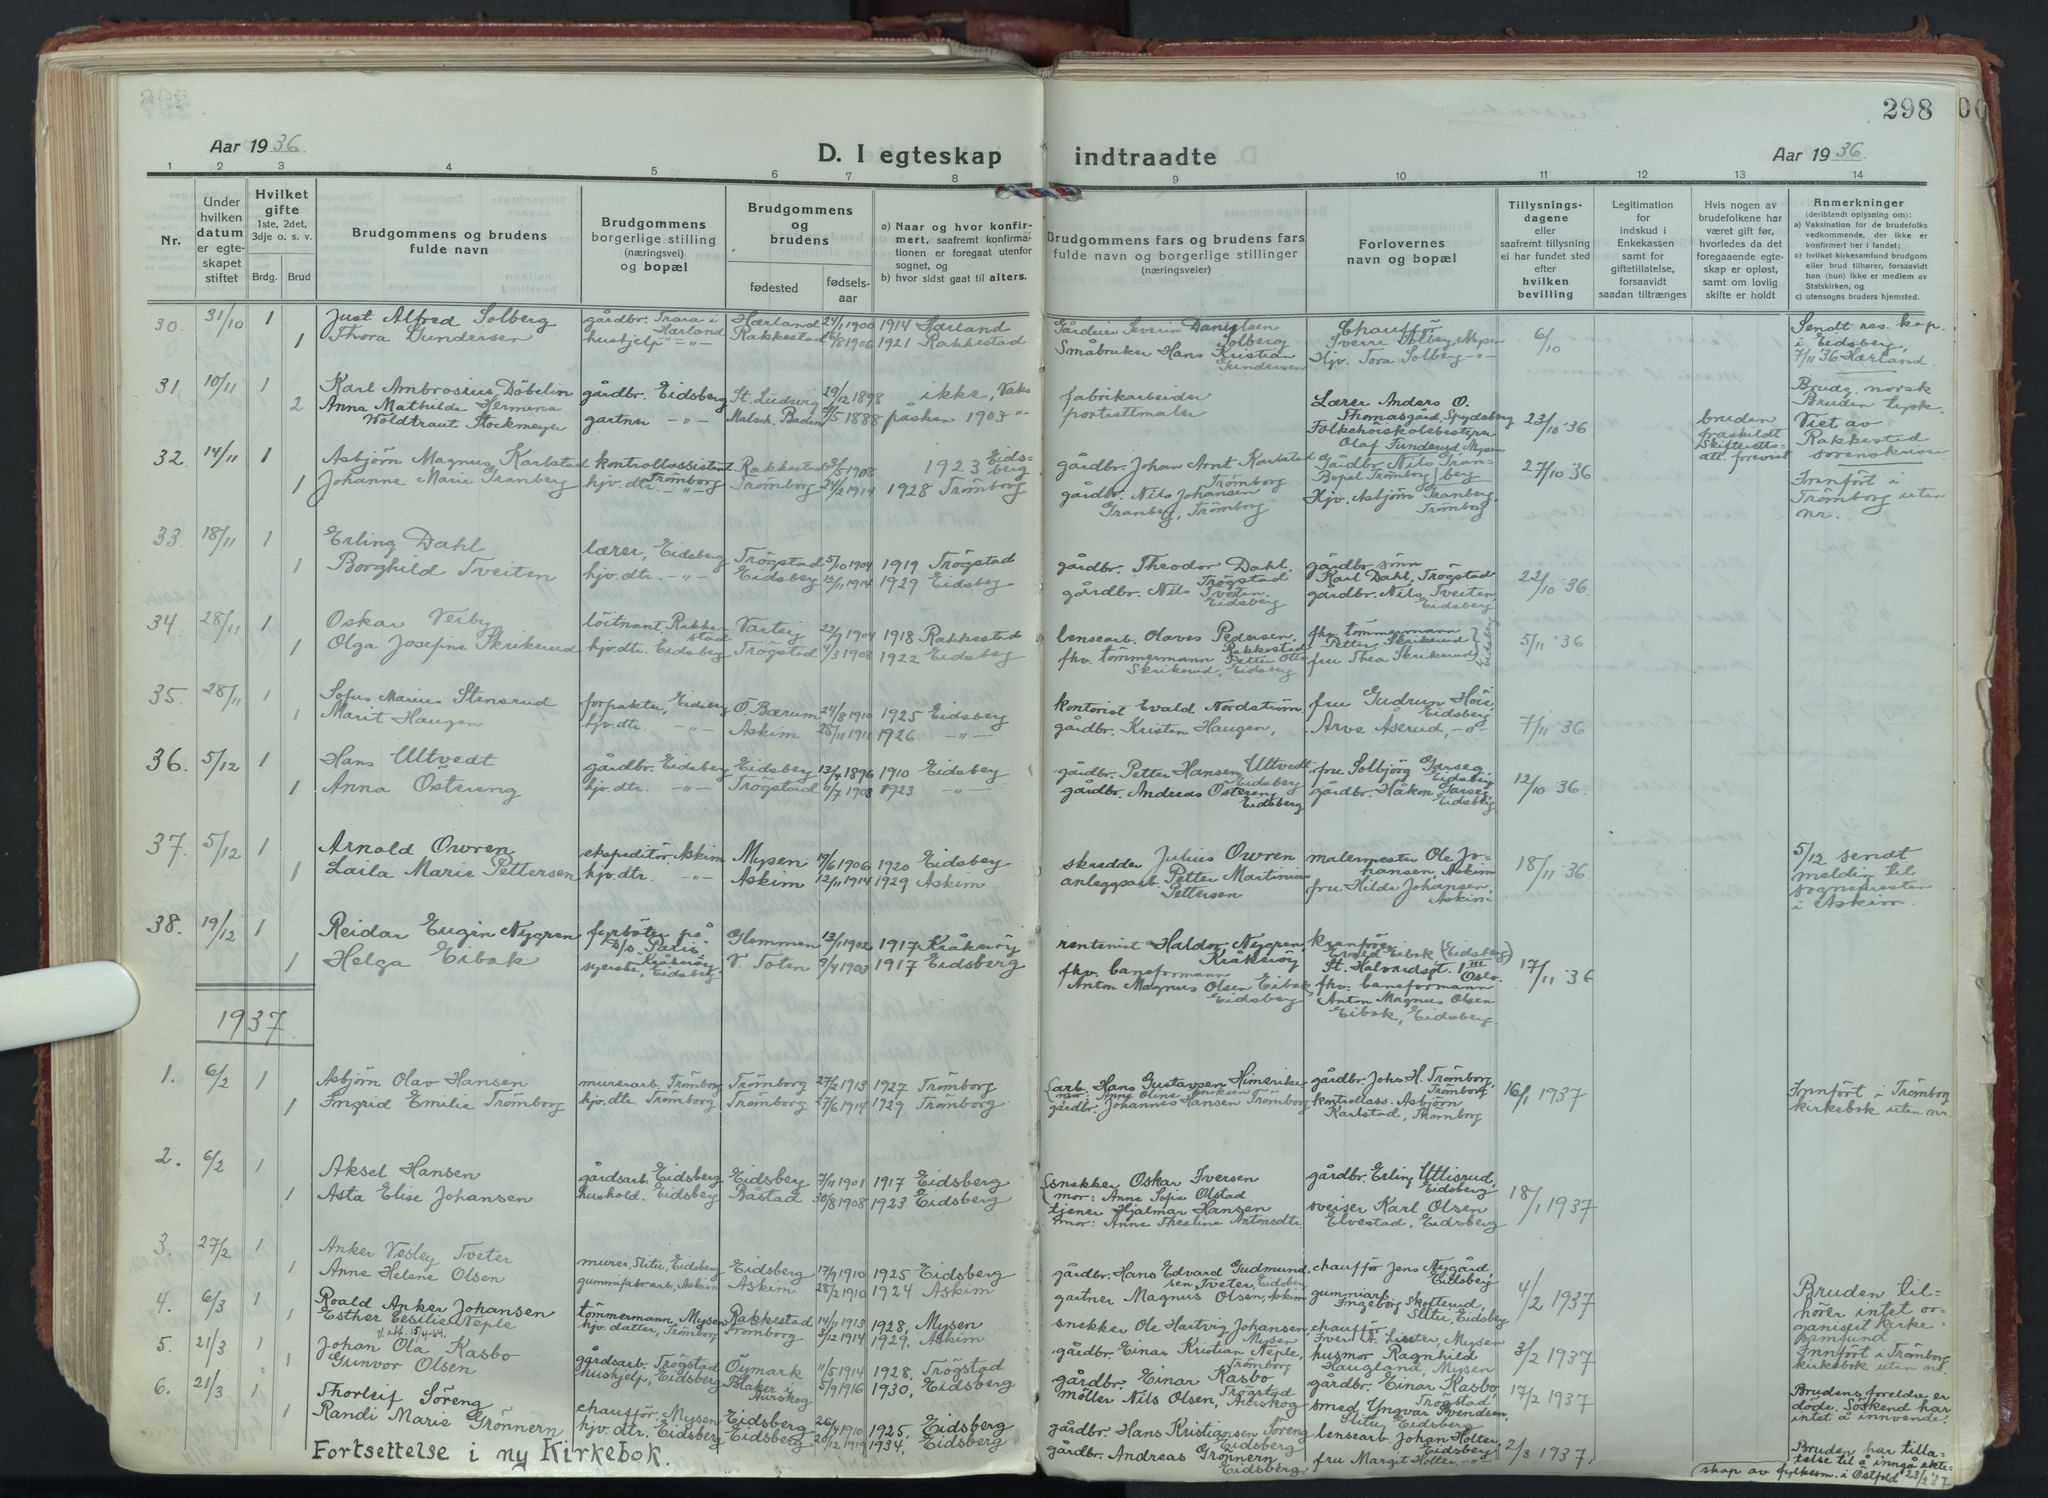 298
Aar 1936.
D. I egteskap indtraadte
Aar 1936
1 2 3 4 5 6 7 8 9 10 11 12 13 14
Nr.
Under hvilken datum er egteskapet stiftet
Hvilket gifte 1ste, 2det, 3dje o. s. v.
Brdg. Brud
Brudgommens og brudens fulde navn
Brudgommens borgerlige stilling (næringsvei) og bopæl
Brudgommens og brudens
fødested
fødselsaar
a) Naar og hvor konfirmert, saafremt konfirmationen er foregaat utenfor sognet, og
b) hvor sidst gaat til alters.
Brudgommens fars og brudens fars fulde navn og borgerlige stillinger (næringsveier)
Forlovernes navn og bopæl
Tillysningsdagene eller saafremt tillysning ei har fundet sted efter hvilken bevilling
Legitimation for indskud i Enkekassen samt for giftetillatelse, forsaavidt saadan tiltrænges
Hvis nogen av brudefolkene har været gift før, hvorledes da det foregaaende egteskap er opløst, samt om lovlig skifte er holdt
Anmerkninger (deriblandt oplysning om):
a) Vaksination for de brudefolks vedkommende, der ikke er konfirmert her i landet;
b) hvilket kirkesamfund brudgom eller brud tilhører, forsaavidt han (hun) ikke er medlem av Statskirken, og
c) utensogns bruders hjemsted.
30. 31/10 1 Just Alfred Solberg gårdbr. Trara i Hærland Hærland 24/1 1900 1914 Hærland Gårdeier Severin Danielsen Solberg Chauffør Sverre Solberg, Mysen 6/10 Sendt res. kap. i Eidsberg, 7/11 36 Hærland.
1 Thora Gundersen hushjelp -"- Rakkestad 6/8 1906 1921 Rakkestad Småbruker Hans Kristian Gundersen Hjv. Tora Solberg -"-
31 10/11 1 Karl Ambrosius Döbelin gårdbr. Eidsberg St. Ludwig 29/12 1898 ikke, Vaks. fabrikarbeider Lærer Anders O. Thomasgård, Spydeberg 23/10 36 bruden fraskildt Skifteretts att. forevist Brudg. norsk Bruden tysk. Viet av Rakkestad sorenskriver.
2 Anna Mathilde Hermina Woldtraut Stockmeyer gartner -"- Malsch, Baden 1888 påsken 1903 -"- portrettmaler Folkehöiskolebestyrer Olaf Funderud, Mysen
32. 14/11 1 Asbjörn Magnus Karlstad kontrollassistent Trömborg Rakkestad 1908 1923 Eidsberg gårdbr. Johan Arnt Karlstad Trömborg Gårdbr. Nils Granberg Bopel Trömborg 27/10 36 Innfört i Trömborg uten nr.
1 Johanne Marie Granberg hjv. dtr. -"- Trömborg 24/2 1914 1928 Trömborg gårdbr. Nils Johansen Granberg, Trömborg og Hjv. Asbjørn Granberg, Trömborg
33. 18/11 1 Erling Dahl lærer, Eidsberg Trögstad 5/10 1904 1919 Trögstad gårdbr. Theodor Dahl, Trögstad gårdbr. sönn Karl Dahl, Trögstad 22/10 36.
1 Borghild Tveiten hjv. dtr. -"- Eidsberg 12/11 1914 1929 Eidsberg gårdbr. Nils Tveiten, Eidsberg gårdbr. Nils Tveiten, Eidsberg
34. 28/11 1 Oskar Veiby löitnant, Rakkestad Varteig 22/9 1904 1918 Rakkestad lensearb. Olaves Pedersen, Rakkestad fhv. tömmermann Petter Skrikerud Eidsberg 5/11 36
1 Olga Josefine Skrikerud hjv. dtr. Eidsberg Trögstad 4/3 1908 1922 Eidsberg fhv. tömmermann Petter Otto Skrikerud, Eidsberg fru Thea Skrikerud
35. 28/11 1 Sofus Marius Stensrud forpakter, Eidsberg Ö. Bærum 24/8 1910 1925 Eidsberg kontorist Evald Nordström fru Gudrun Höie, Eidsberg 7/11 36
1 Marit Haugen hjv. dtr. -"- Askim 25/11 1911 1926 -"- gårdbr. Kristen Haugen, Arve Åserud, -"-
36. 5/12 1 Hans Ultvedt gårdbr. Eidsberg Eidsberg 13/4 1896 1910 Eidsberg gårdbr. Petter Hansen Ultvedt Eidsberg fru Solbjörg Garseg, Eidsberg 12/10 36.
1 Anna Östereng hjv. dtr. -"- Trögstad 11/7 1908 1923 -"- gårdbr. Andreas Östereng Eidsberg gårdbr. Håkon Garseg, Eidsberg
37. 5/12 1 Arnold Owren ekspeditör, Askim Mysen 19/6 1906 1920 Eidsberg skredder Julius Owren malermester Ole Johansen, Askim 18/11 36 5/12 sendt melding til sognepresten i Askim.
1 Laila Marie Pettersen hjv. dtr. -"- Askim 12/11 1914 1929 Askim anleggsarb. Petter Martinius Pettersen fru Hilda Johansen, Askim
38. 19/12 1 Reidar Eugen Nygren fyrböter på D/S Paris, Kråkeröy Glemmen 13/11 1902 1917 Kråkeröy rentenist Haldor Nygren, Kråkeröy kranförer Evald Eibak (Eidsberg) St. Halvardsgt. 1 III Oslo. 17/11 36
1 Helga Eibak syerske, Eidsberg V. Toten 9/4 1903 1917 Eidsberg fhv. baneformann Anton Magnus Olsen Eibak, Eidsberg fhv. baneformann Anton Magnus Olsen Eibak, Eidsberg.
1937
1. 6/2 1 Asbjörn Olav Hansen murerarb. Trömborg Trömborg 27/2 1913 1927 Trömborg arb. Hans Gustavsen Himerike mor: Anne Oline gårdbr. Johs H. Trömborg, Trömborg 16/1 1937 Innfört i Trömborg kirkebok uten nr.
1 Ingrid Emilie Trömborg hjv. dtr. Trömborg Trömborg 27/6 1914 1929 Trömborg gårdbr. Johannes Hansen Trömborg kontrollass. Asbjörn Karlstad, Trömborg
2. 6/2 1 Aksel Hansen gårdsarb. Eidsberg Eidsberg 7/11 1901 1917 Eidsberg snekker Oskar Iversen mor: Anne Sofie Olstad gårdbr. Erling Ultisrud, Eidsberg 18/1 1937
1 Asta Elise Johansen hushold. Eidsberg Båstad 30/8 1908 1923 Eidsberg tjener Hjalmar Hansen mor: Anne Thestine Antonsdtr sveiser Karl Olsen Elvestad, Eidsberg
3. 27/2 1 Anker Vesley Tveter murer, Slitu, Eidsberg Eidsberg 17/9 1910 1925 Eidsberg gårdbr. Hans Edvard Gudmundsen Tveter, Eidsberg chaufför Jens Nygård, Eidsberg 4/2 1937 Bruden tilhörer intet organisert kirkesamfund
1 Anne Helene Olsen gummifabr.arb, Askim Askim 28/2 1910 1924 Askim gartner Magnus Olsen, Askim gummiarb. Ingeborg Skofterud, Slitu, Eidsberg
4. 6/3 1 Roald Anker Johansen tömmermann, Mysen Rakkestad 14/11 1913 1928, Mysen snekker Ole Hartvig Johansen, Mysen chaufför Iver A. Liseter, Mysen 3/2 1937 Innfört i Trömborg kirkebok uten nr.
1 Esther Cesilie Neple hjv. datter, Trömborg Trömborg 3/12 1914 1929, Askim gårdbr. Einar Kristian Neple, Trömborg husmor Ragnhild Haugland, Mysen
5. 21/3 1 Johan Ola Kasbo gårdsarb. Trögstad Öymark 11/5 1914 1928, Trögstad gårdbr. Einar Kasbo Trögstad gårdbr. Einar Kasbo, Trögstad 17/2 1937 Brudens foreldre er döde. Söskend har intet å innvende.
1 Gunvor Olsen hushjelp, Eidsberg Blaker Aurskog 5/9 1916 1930, Eidsberg möller Nils Olsen, Aurskog smed Yngvar Svendsen, Slitu, Eidsberg
6. 21/3 1 Thorleif Söreng chaufför, Mysen Eidsberg 26/4 1910 1925, Eidsberg gårdbr. Hans Kristiansen Söreng Eidsberg lensearb. Johan Holter, Eidsberg 2/3 1937. Bruden har tillatelse til å inngå ekteskap av fylkesm. i Östfold 23/2 37
1 Randi Marie Grönnern hjv. dtr. Eidsberg Eidsberg 20/12 1919 1934, Eidsberg gårdbr. Andreas Grönnern Eidsberg. fru Margit Holter -"-
Fortsettelse i ny Kirkebok.